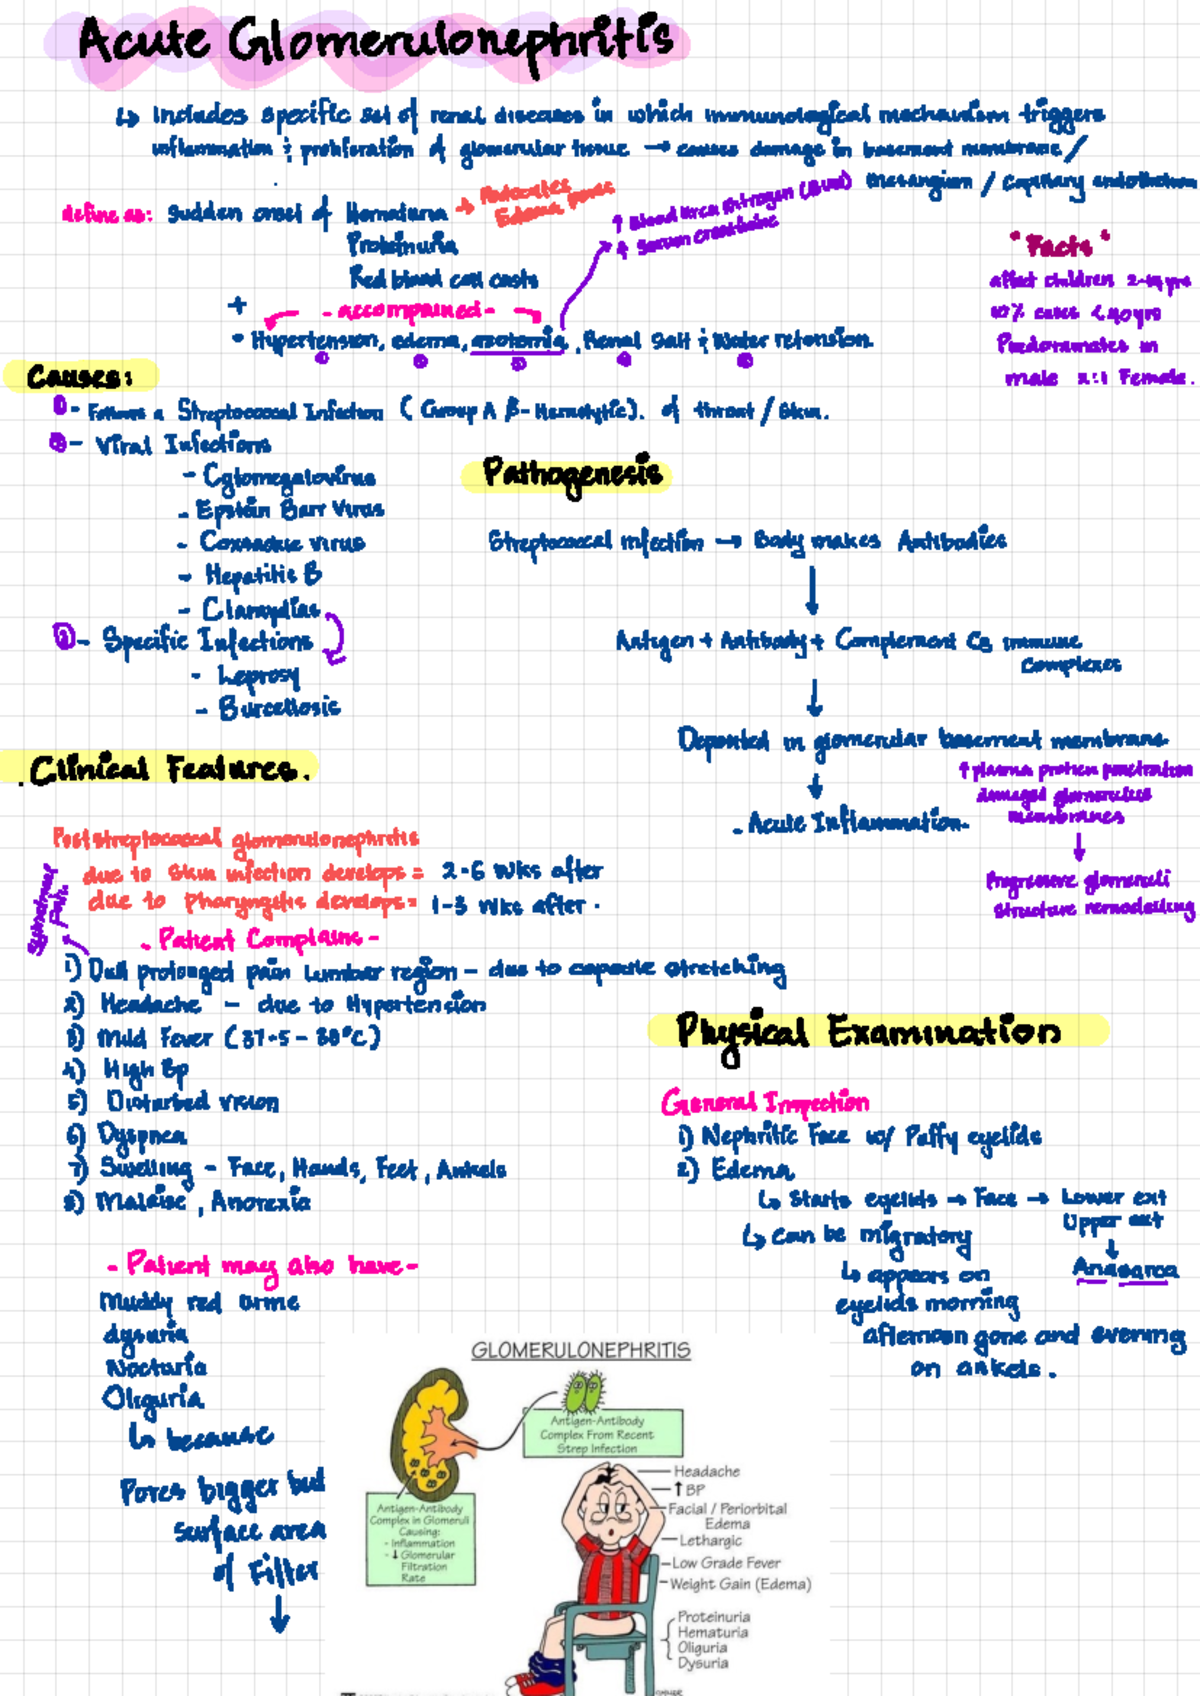 Acute Glomerulonephritis
↳ Includes specific set of renal diseases in which immunological mechanism triggers
inflammation & proliferation of glomerular tissue → causes damage in basement membrane/
mesangium / capillary endothelium
define as: Sudden onset of Hematuria → Podocytes
Edema pores
Proteinuria
Red blood cell casts
↑ Blood Urea Nitrogen (BUN)
↑ Serum creatinine
+
- accompained -
• Hypertension, edema, azotemia, Renal Salt & Water retension.
"Facts"
affect children 2-14 yrs
10% cases < 40 yrs
Predominates in
male 2:1 Female.
Causes:
① - Follows a Streptococcal Infection ( Group A β-Hemolytic). of throat / Skin.
② - Viral Infections
- Cytomegalovirus
- Epstein Barr Virus
- Coxsackie virus
- Hepatitis B
- Clamydias
③ - Specific Infections
- Leprosy
- Burcellosic
Pathogenesis
Streptococcal infection → Body makes Antibodies
↓
Antigen + Antibody + Complement C3 immune
complexes
↓
Deposited in glomerular basement membrane
↓
- Acute Inflammation.
↑ plasma protien penetration
damaged glomerulus
membranes
↓
Progressive glomeruli
structure remodelling
Clinical Features.
Poststreptococcal glomerulonephritis
due to Skin infection develops = 2-6 wks after
due to Pharyngitis develops = 1-3 wks after.
- Patient Complains -
1) Dull prolonged pain Lumbar region - due to capsule stretching
2) Headache - due to Hypertension
3) Mild Fever (37.5 - 38°C)
4) High Bp
5) Disturbed vision
6) Dyspnea
7) Swelling - Face, Hands, Feet, Ankels
8) Malaise, Anorexia
- Patient may also have -
Muddy red urine
dysuria
Nocturia
Oliguria
↳ because
Pores bigger but
surface area
of Filter
↓
Physical Examination
General Inspection
1) Nephritic Face w/ Puffy eyelids
2) Edema
↳ Starts eyelids → Face → Lower ext
Upper ext
↓
Anasarca
↳ Can be migratory
↳ appears on
eyelids morning
afternoon gone and evening
on ankels.
GLOMERULONEPHRITIS
Antigen-Antibody
Complex From Recent
Strep Infection
Antigen-Antibody
Complex in Glomeruli
Causing:
- Inflammation
- ↓ Glomerular
Filtration
Rate
Headache
↑ BP
Facial / Periorbital
Edema
Lethargic
Low Grade Fever
Weight Gain (Edema)
Proteinuria
Hematuria
Oliguria
Dysuria